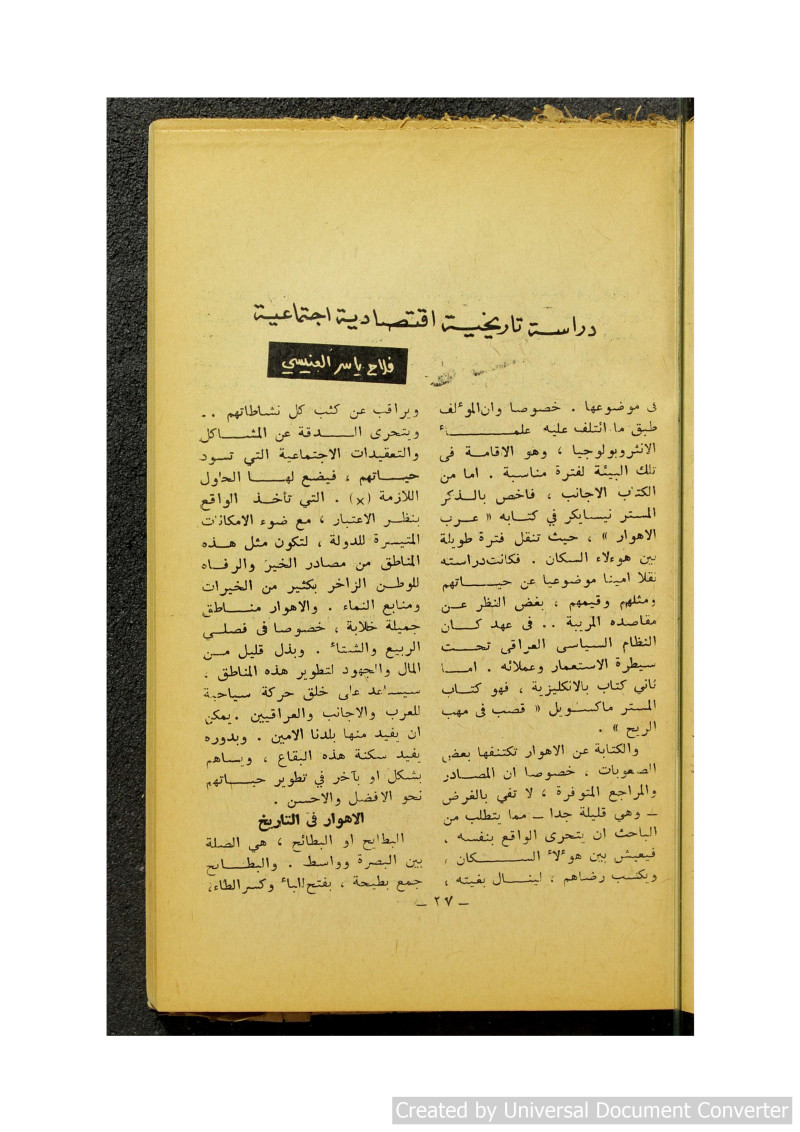 دراسة تاريخية اقتصادية اجتماعية
فلاح ياسر العنيسي
فى موضوعها . خصوصا وان المؤلف
طبق ما ائتلف عليه علمـــــاء
الانثروبولوجيا ، وهو الاقامة فى
تلك البيئة لفترة مناسبة . اما من
الكتاب الاجانب ، فاخص بالـذكر
المستر نيسايكر في كتابه « عـرب
الاهوار » ، حيث تنقل فترة طويلة
بين هوءلاء السكان . فكانت دراسته
نقلا امينا موضوعيا عن حيـــاتهم
ومثلهم وقيمهم ، بغض النظر عـن
مقاصده المريبة .. فى عهد كــان
النظام السياسى العراقى تحـــت
سيطرة الاستعمار وعملائه . امــا
ثاني كتاب بالانكليزية ، فهو كتــاب
المستر ماكسـويل « قصب فى مهب
الريح » .
والكتابة عن الاهوار تكتنفها بعض
الصعوبات ، خصوصا ان المصــادر
والمراجع المتوفرة ، لا تفي بالغرض
ــ وهي قليلة جدا ــ مما يتطلب من
الباحث ان يتحرى الواقع بنفسه ،
فيعيش بين هوءلاء الســـكان ،
ويكسب رضاهم ، لينــال بغيته ،
ويراقب عن كثب كل نشـاطاتهم ..
ويتحرى الـــدقة عن المشــاكل
والتعقيدات الاجتماعية التي تسـود
حيــاتهم ، فيضع لهــا الحلول
اللازمة (×) . التي تأخـذ الواقع
بنظـر الاعتبار ، مع ضوء الامكانات
المتيسرة للدولة ، لتكون مثل هـذه
المناطق من مصادر الخير والرفـاه
للوطن الزاخر بكثير من الخيرات
ومنابع النماء . والاهوار منــاطق
جميلة خلابة ، خصوصا فى فصلـي
الربيع والشتاء . وبذل قليل مـن
المال والجهود لتطوير هذه المناطق .
سيساعد على خلق حركة سياحية
للعرب والاجانب والعراقيين . يمكن
ان يفيد منها بلدنا الامين . وبدوره
يفيد سكنة هذه البقاع ، ويساهم
بشكل او بآخر في تطوير حيــاتهم
نحو الافضل والاحسن .
الاهوار فى التاريخ
البطايح او البطائح ، هي الصلة
بين البصرة وواسط . والبطــايح
جمع بطيحة ، بفتح الباء وكسر الطاء،
ــ ٢٧ ــ
Created by Universal Document Converter